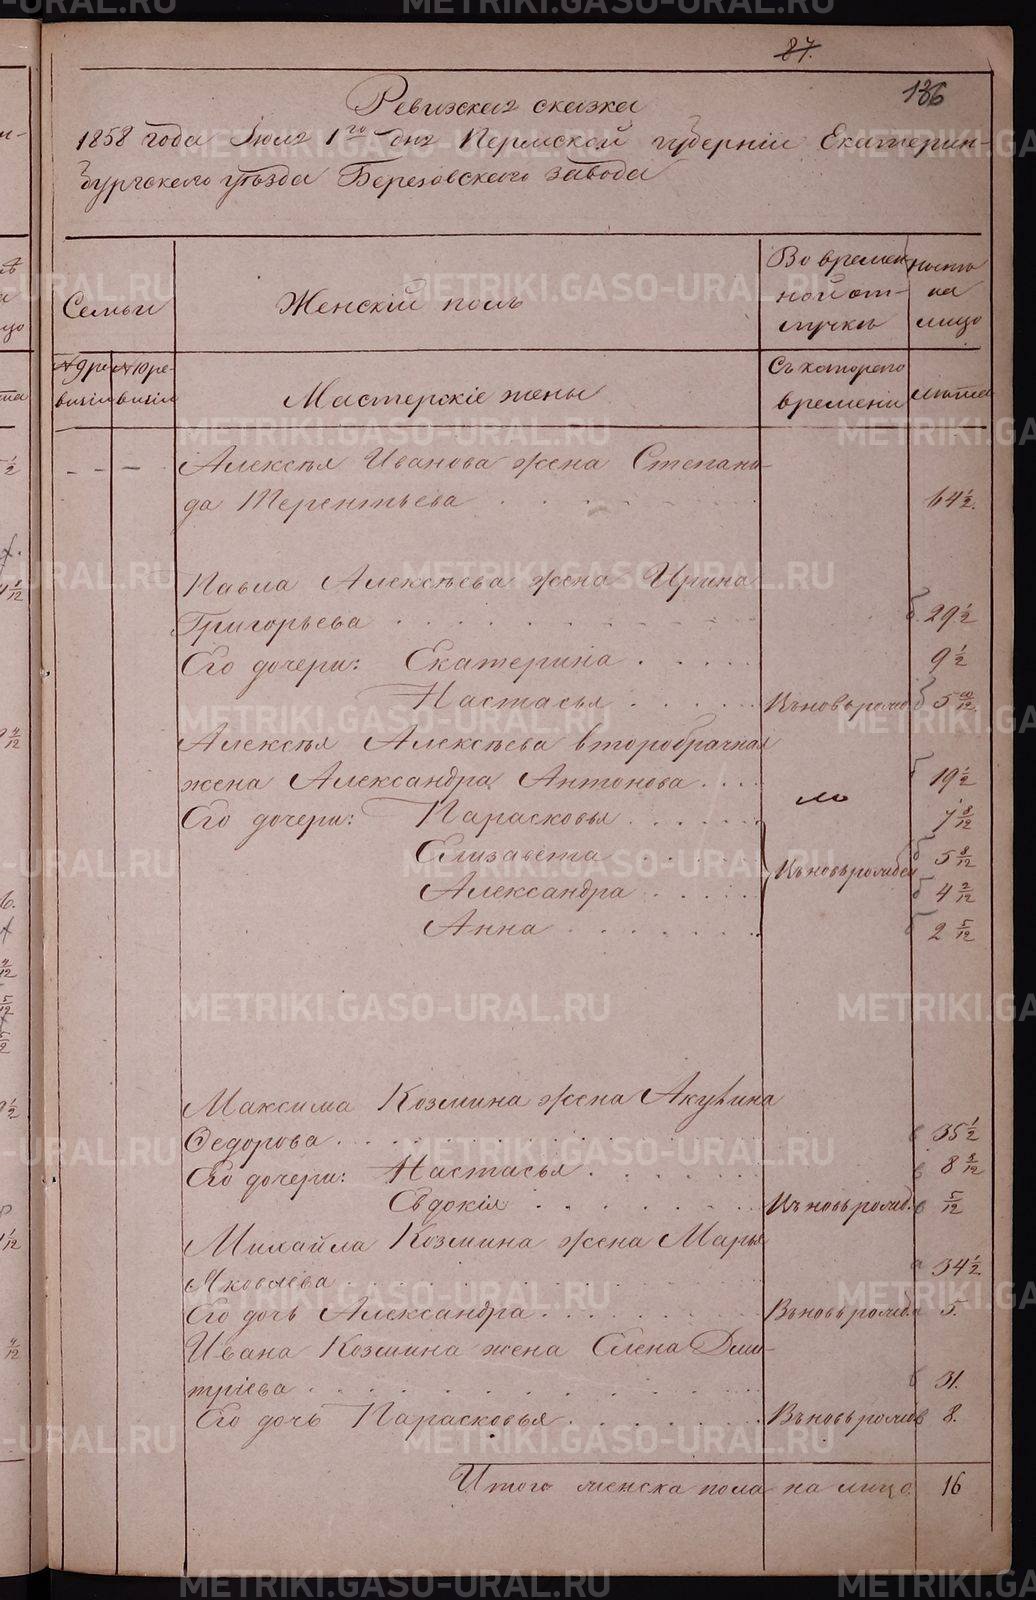 87.
136
Ревизская сказка
1858 года Июля 1го дня Пермской губерніи Екатерин-
бургскаго уѣзда Березовскаго завода
Семьи
Женскій полъ
Во времен
ной от-
лучкѣ
ность
на
лицо
№ 9 ре
визіи
№ 10 ре-
визіи
Мастерскіе жены
Съ котораго
времени
лѣта
Алексѣя Иванова жена Степани-
да Терентьева 64 ½.
Павла Алексѣева жена Ирина
Григорьева 29 ½
Его дочери: Екатерина 9 ½
Настасья Въновьрожд 5 10/12.
Алексѣя Алексѣева второбрачная
жена Александра Антонова 19 ½
Его дочери: Парасковья 7 8/12
Елизавета 5 8/12
Въновьрожден
Александра 4 2/12
Анна 2 5/12
Максима Козмина жена Акулина
Ѳедорова 35 ½
Его дочери: Настасья 8 8/12
Евдокія Въновьрожд. 5/12
Михайла Козмина жена Марья
Яковлева 34 ½
Его дочь Александра Въновьрожд 5.
Ивана Козмина жена Елена Дми-
тріева 31.
Его дочь Парасковья Въновьрожд 8.
Итого женска пола на лицо 16
METRIKI.GASO-URAL.RU